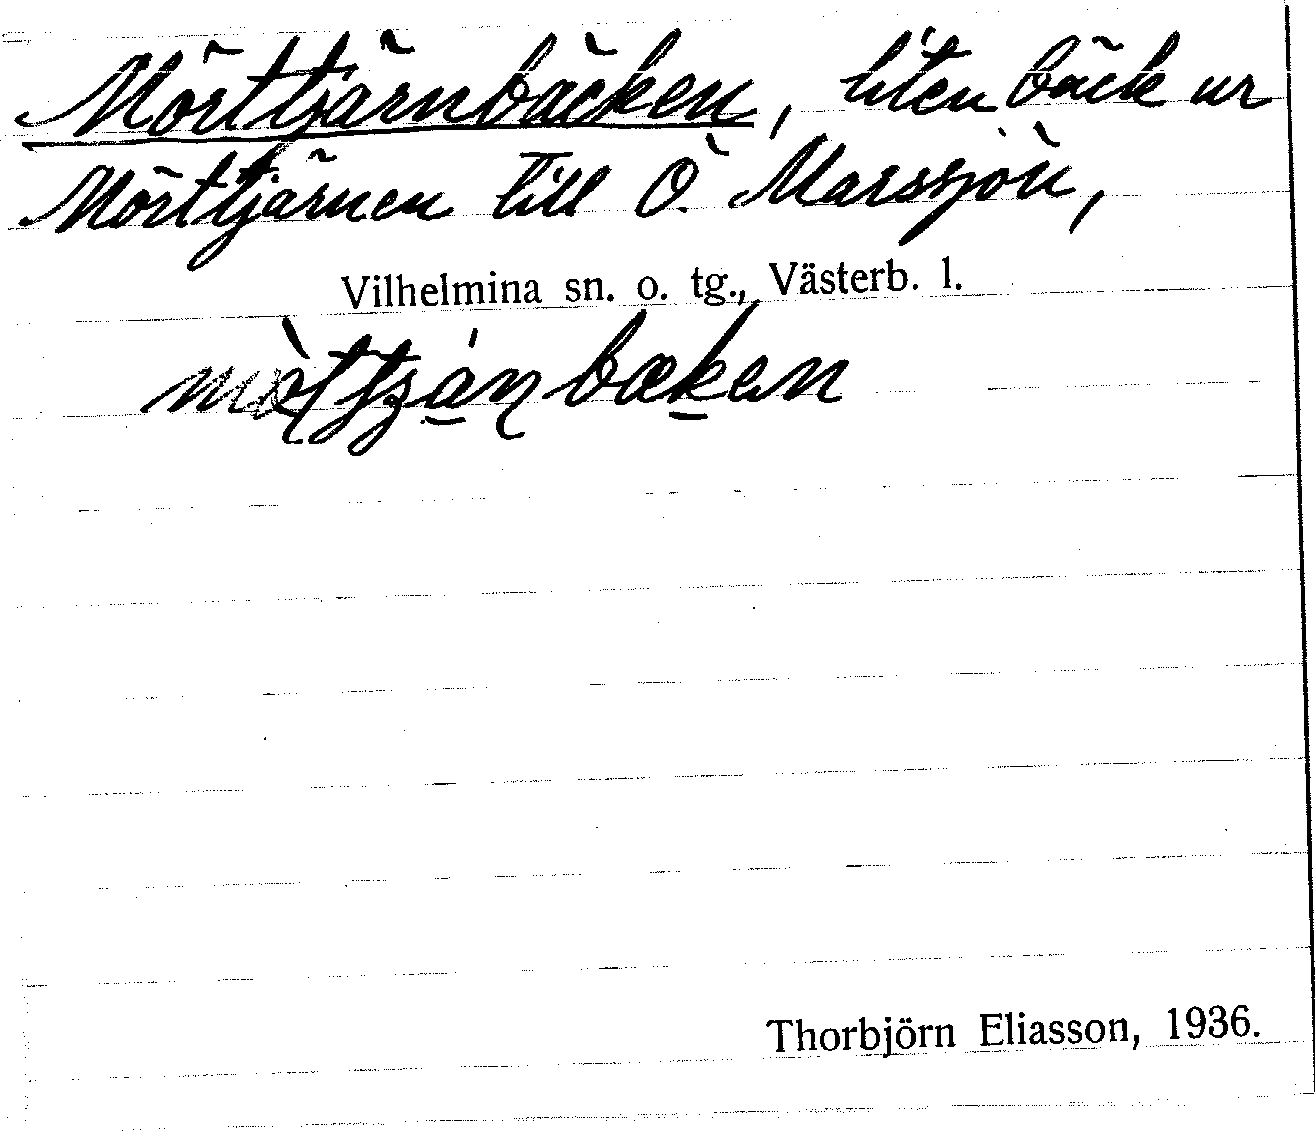 Mörttjärnbäcken, liten bäck ur
Mörttjärnen till Ö. Marssjön,
Vilhelmina sn. o. tg., Västerb. l.
Thorbjörn Eliasson, 1936.